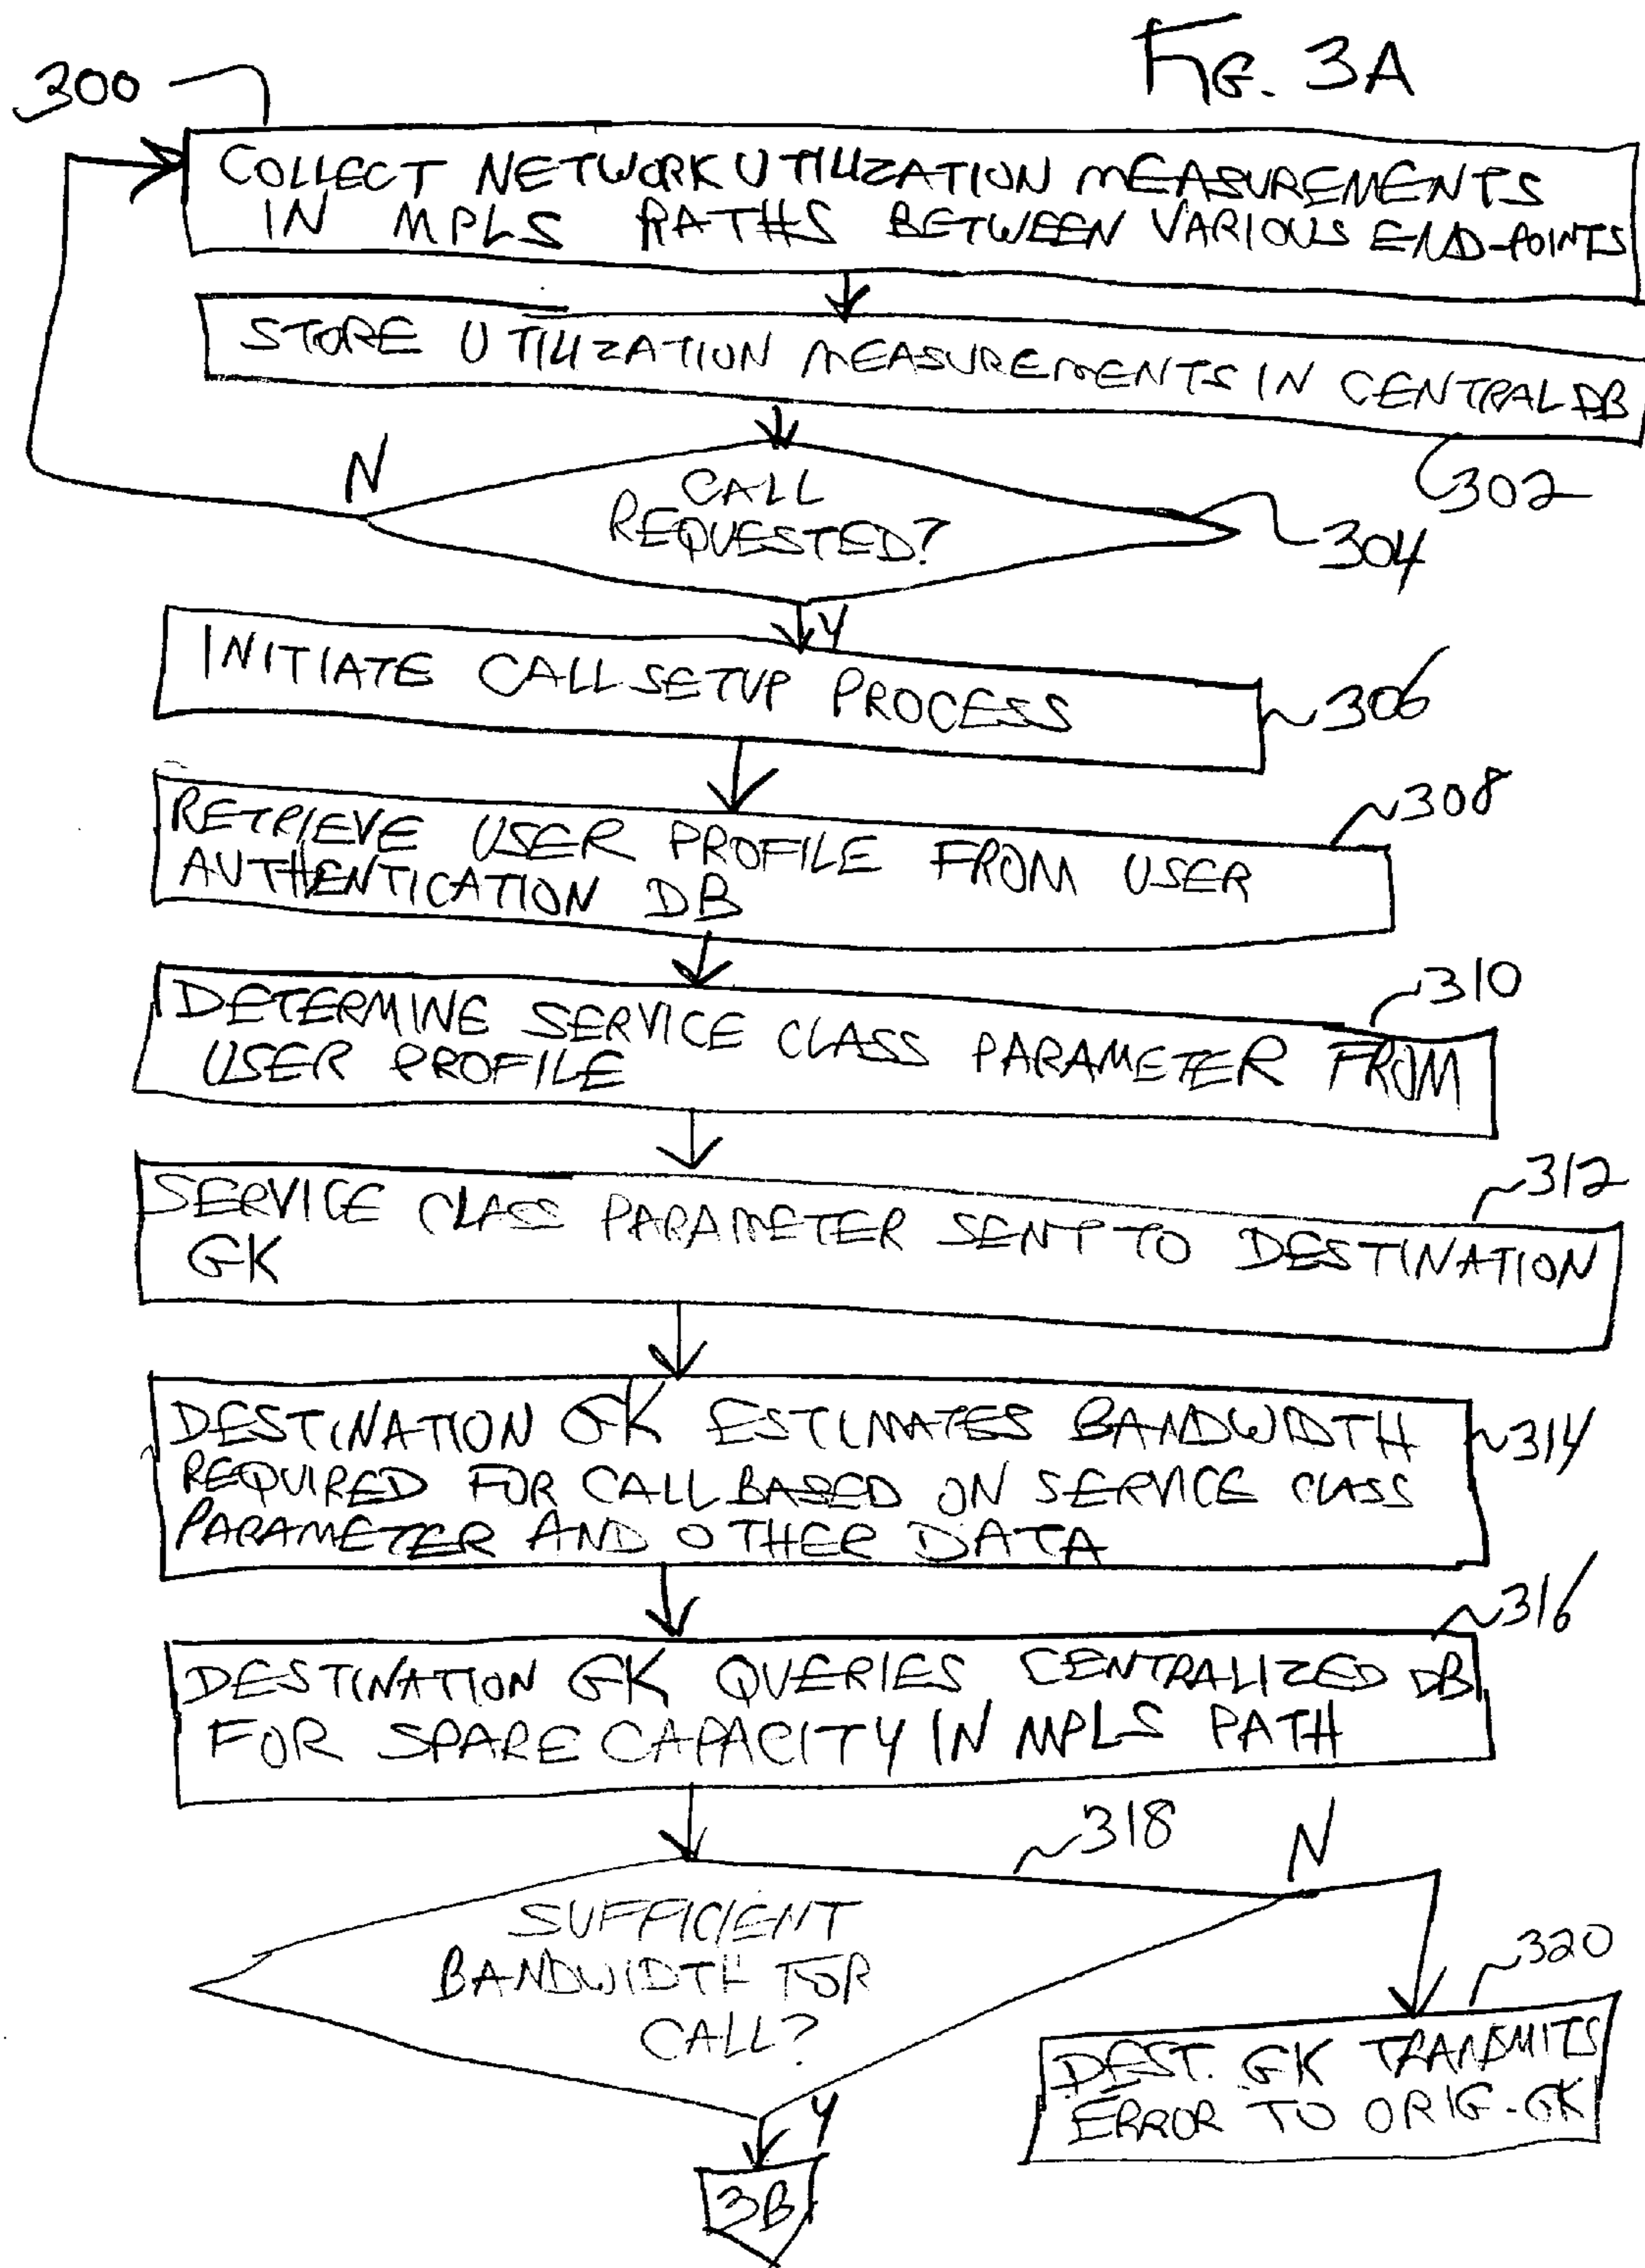 FIG. 3A
300
COLLECT NETWORK UTILIZATION MEASUREMENTS
IN MPLS PATHS BETWEEN VARIOUS END-POINTS
STORE UTILIZATION MEASUREMENTS IN CENTRAL DB
302
N
CALL
REQUESTED?
304
Y
INITIATE CALL SETUP PROCESS
306
308
RETRIEVE USER PROFILE FROM USER
AUTHENTICATION DB
310
DETERMINE SERVICE CLASS PARAMETER FROM
USER PROFILE
312
SERVICE CLASS PARAMETER SENT TO DESTINATION
GK
DESTINATION GK ESTIMATES BANDWIDTH
REQUIRED FOR CALL BASED ON SERVICE CLASS
PARAMETER AND OTHER DATA
314
316
DESTINATION GK QUERIES CENTRALIZED DB
FOR SPARE CAPACITY IN MPLS PATH
318
N
SUFFICIENT
BANDWIDTH FOR
CALL?
320
DEST. GK TRANSMITS
ERROR TO ORIG-GK
Y
3B